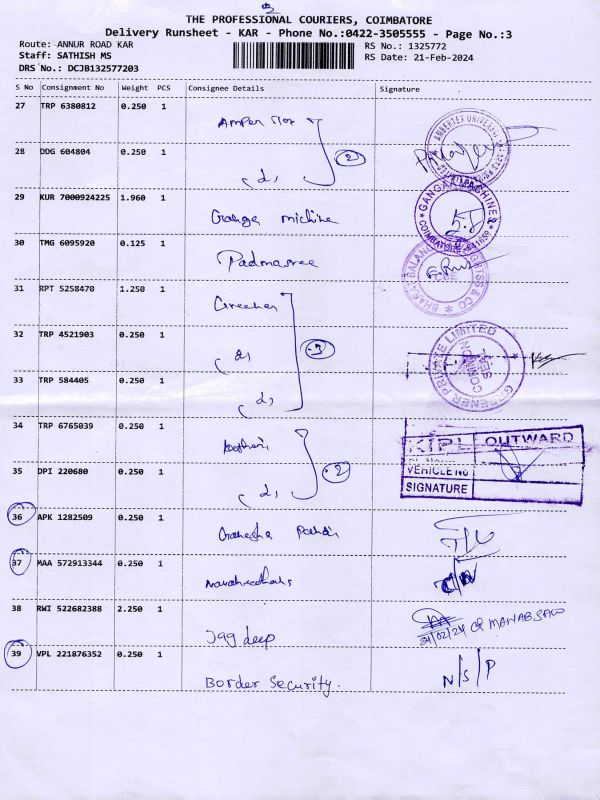 THE PROFESSIONAL COURIERS, COIMBATORE
Delivery Runsheet - KAR - Phone No.:0422-3505555 - Page No.:3
Route: ANNUR ROAD KAR
RS No.: 1325772
Staff: SATHISH MS
RS Date: 21-Feb-2024
DRS No.: DCJB132577203
S No Consignment No Weight PCS Consignee Details Signature
27 TRP 6380812 0.250 1
28 DDG 604804 0.250 1
(2)
29 KUR 7000924225 1.960 1
Ganga michine
GANGAA MACHINE
COIMBATORE
30 TMG 6095920 0.125 1
Padmasree
31 RPT 5258470 1.250 1
32 TRP 4521903 0.250 1
3
GREENER PRIVATE LIMITED
33 TRP 584405 0.250 1
34 TRP 6765039 0.250 1
KIPL OUTWARD
35 DPI 220680 0.250 1
2
VEHICLE No
SIGNATURE
36 APK 1282509 0.250 1
37 MAA 572913344 0.250 1
38 RWI 522682388 2.250 1
Jagdeep
21/02/24
39 VPL 221876352 0.250 1
Border Security.
N/S/P